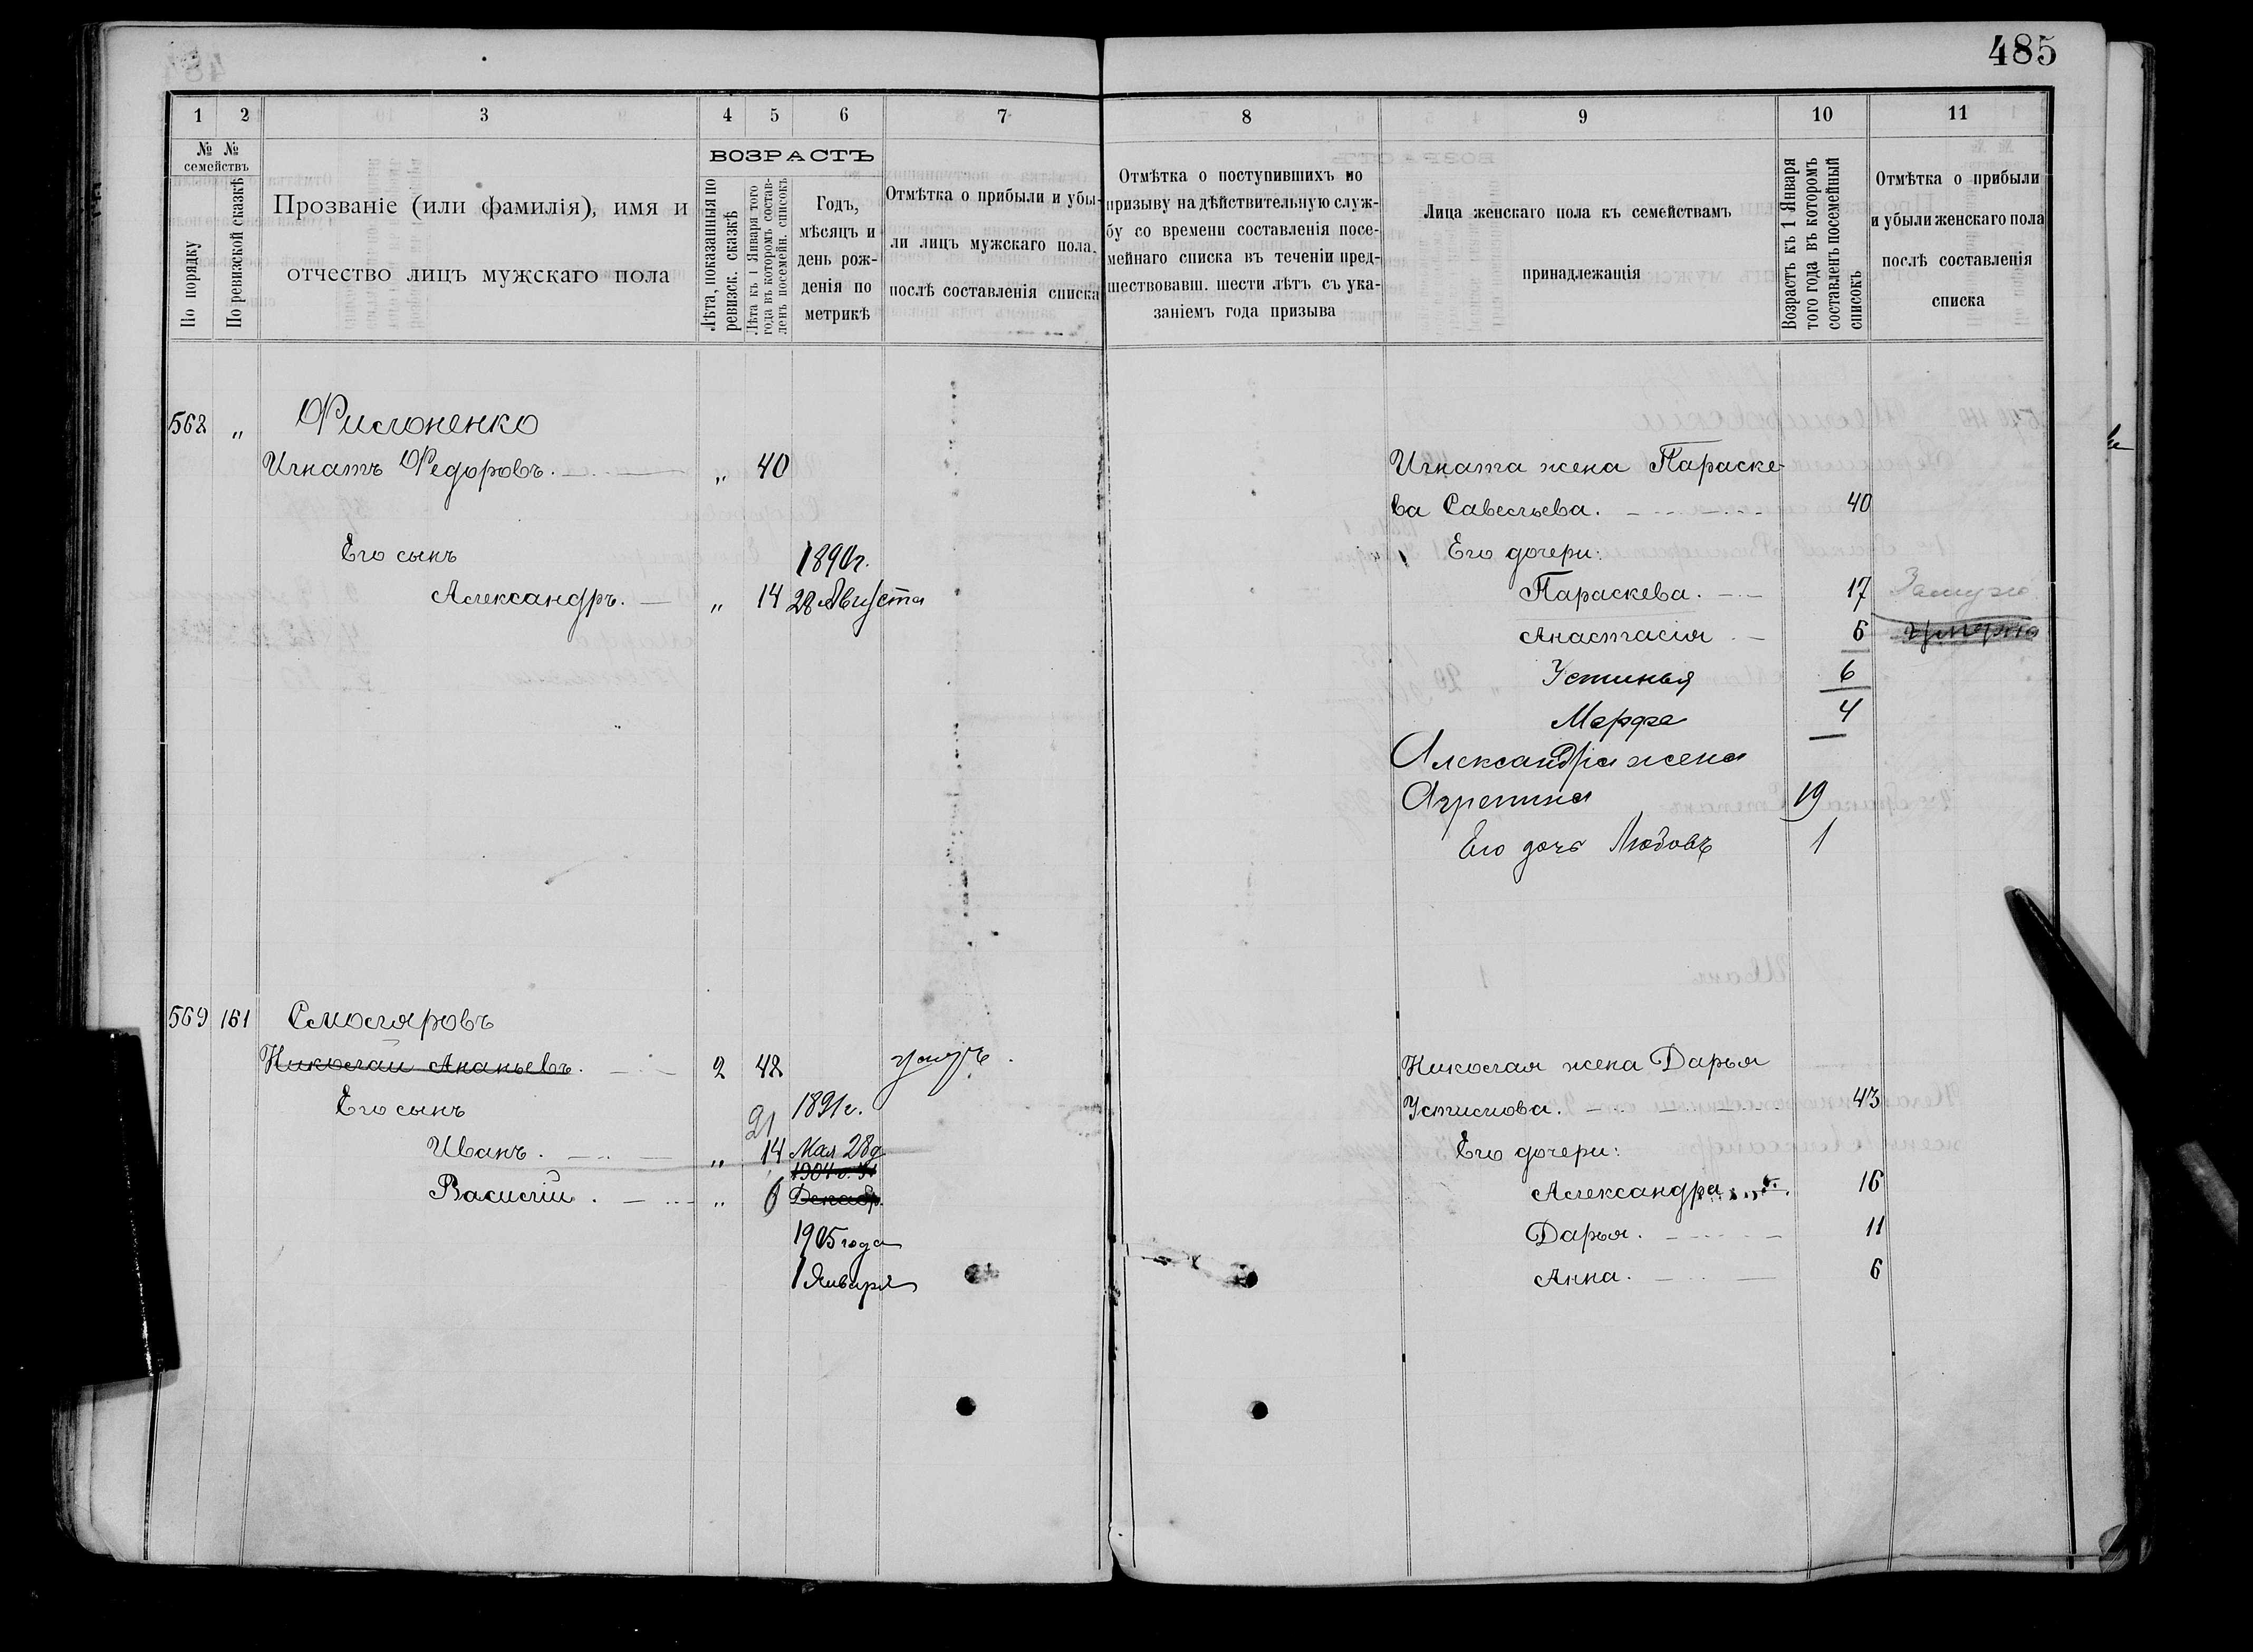 485
1 2 3 4 5 6 7
№ № семействъ
По порядку
По ревизской сказкѣ
Прозваніе (или фамилія), имя и
отчество лицъ мужскаго пола
ВОЗРАСТЪ
Лѣта, показанныя по
ревизск. сказкѣ
Лѣта къ 1 Января того
года въ которомъ состав-
ленъ посемейн. списокъ
Годъ,
мѣсяцъ и
день рож-
денія по
метрикѣ
Отмѣтка о прибыли и убы-
ли лицъ мужскаго пола
послѣ составленія списка
562 „ Филоненко
Игнатъ Федоровъ. „ 40
Его сынъ 1890г.
Александръ. „ 14 28 Августа
569 161 Смоляровъ
Николай Ананьевъ. 2 42
Его сынъ 1891г.
21
Иванъ. „ 14 Мая 28д
1904г. 31
Василій. „ 6 Декабр.
1905 года
1 Января
8 9 10 11
Отмѣтка о поступившихъ по
призыву на дѣйствительную служ-
бу со времени составленія посе-
мейнаго списка въ теченіи пред-
шествовавш. шести лѣтъ съ ука-
заніемъ года призыва
Лица женскаго пола къ семействамъ
принадлежащія
Возрастъ къ 1 Января
того года въ которомъ
составленъ посемейный
списокъ
Отмѣтка о прибыли
и убыли женскаго пола
послѣ составленія
списка
Игната жена Параске-
ва Савельева. 40
Его дочери:
Параскева. 17 Замужо
Анастасія 6 умерла
Устинья 6
Марфа 4
Александра жена
Агрепина 19
Его дочь Любовъ 1
Николая жена Дарья
Устинова. 43
Его дочери:
Александра 16
Дарья. 11
Анна. 6